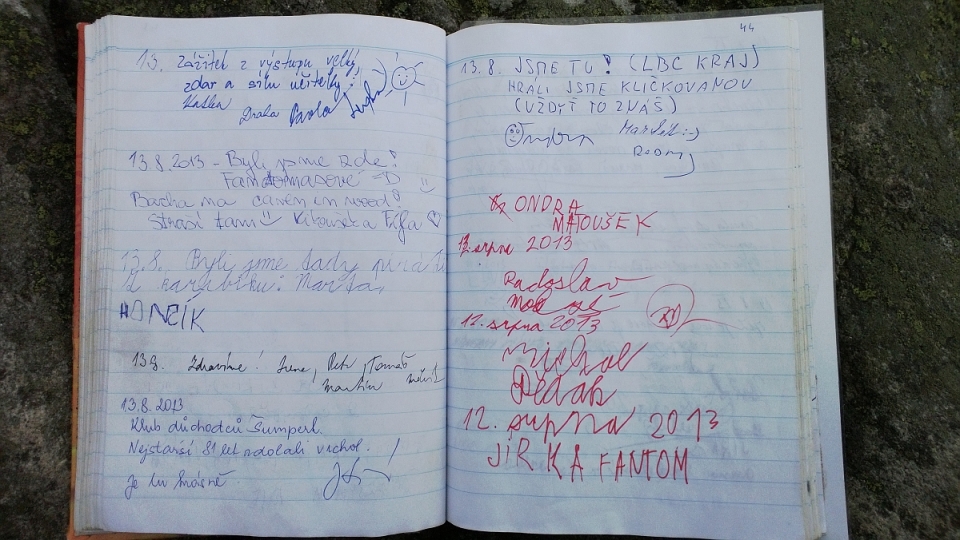 13. Zážitek z výstupu velký,
zdar a sílu učitelky!
Katka
Draha Pavla
13.8.2013 - Byli jsme zde!
Fantomasové =D
Bacha na caven in wood!
Straší tam Kikouška a Fífa
13.8. Byli jsme tady piráti
z karibiku: Marťa,
HONČÍK
13.8. Zdravíme! Irena, Petr, Tomáš
Martin
13.8.2013
Klub důchodců Šumperk
Nejstarší 81 let zdolali vrchol.
Je tu krásně!
44
13.8. JSME TU! (LBC KRAJ)
HRALI JSME KLIČKOVANOU
(VŽDYŤ TO ZNÁŠ)
Ondra Markét :-)
ONDRA
MATOUŠEK
12. srpna 2013
Radoslav
12. srpna 2013
Michal
Dědak
12. srpna 2013
JIRKA FANTOM